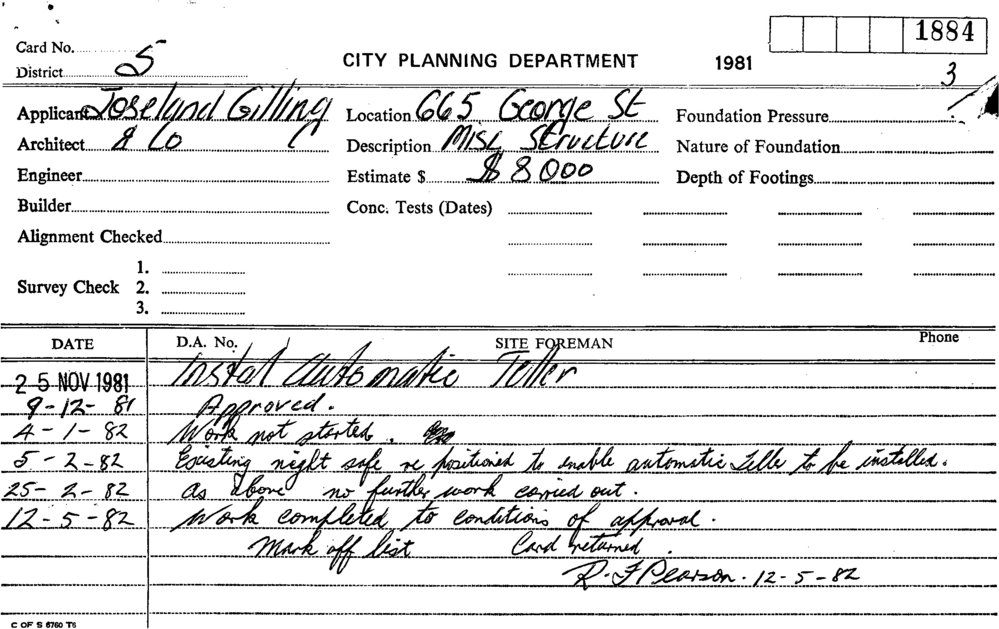 1884
Card No. 5
District
CITY PLANNING DEPARTMENT 1981
3
Applicant Joseland Gilling Location 665 George St Foundation Pressure
Architect & Co Description Misc Structure Nature of Foundation
Engineer Estimate $ $8000 Depth of Footings
Builder Conc. Tests (Dates)
Alignment Checked
1.
Survey Check 2.
3.
DATE D.A. No. SITE FOREMAN Phone
25 NOV 1981 Instal Automatic Teller
9-12-81 Approved.
4-1-82 Work not started.
5-2-82 Existing night safe re positioned to enable automatic Teller to be installed.
25-2-82 As above no further work carried out.
12-5-82 Work completed to conditions of approval.
Mark off list Card returned.
R. F Pearson. 12-5-82
C OF S 6760 T6